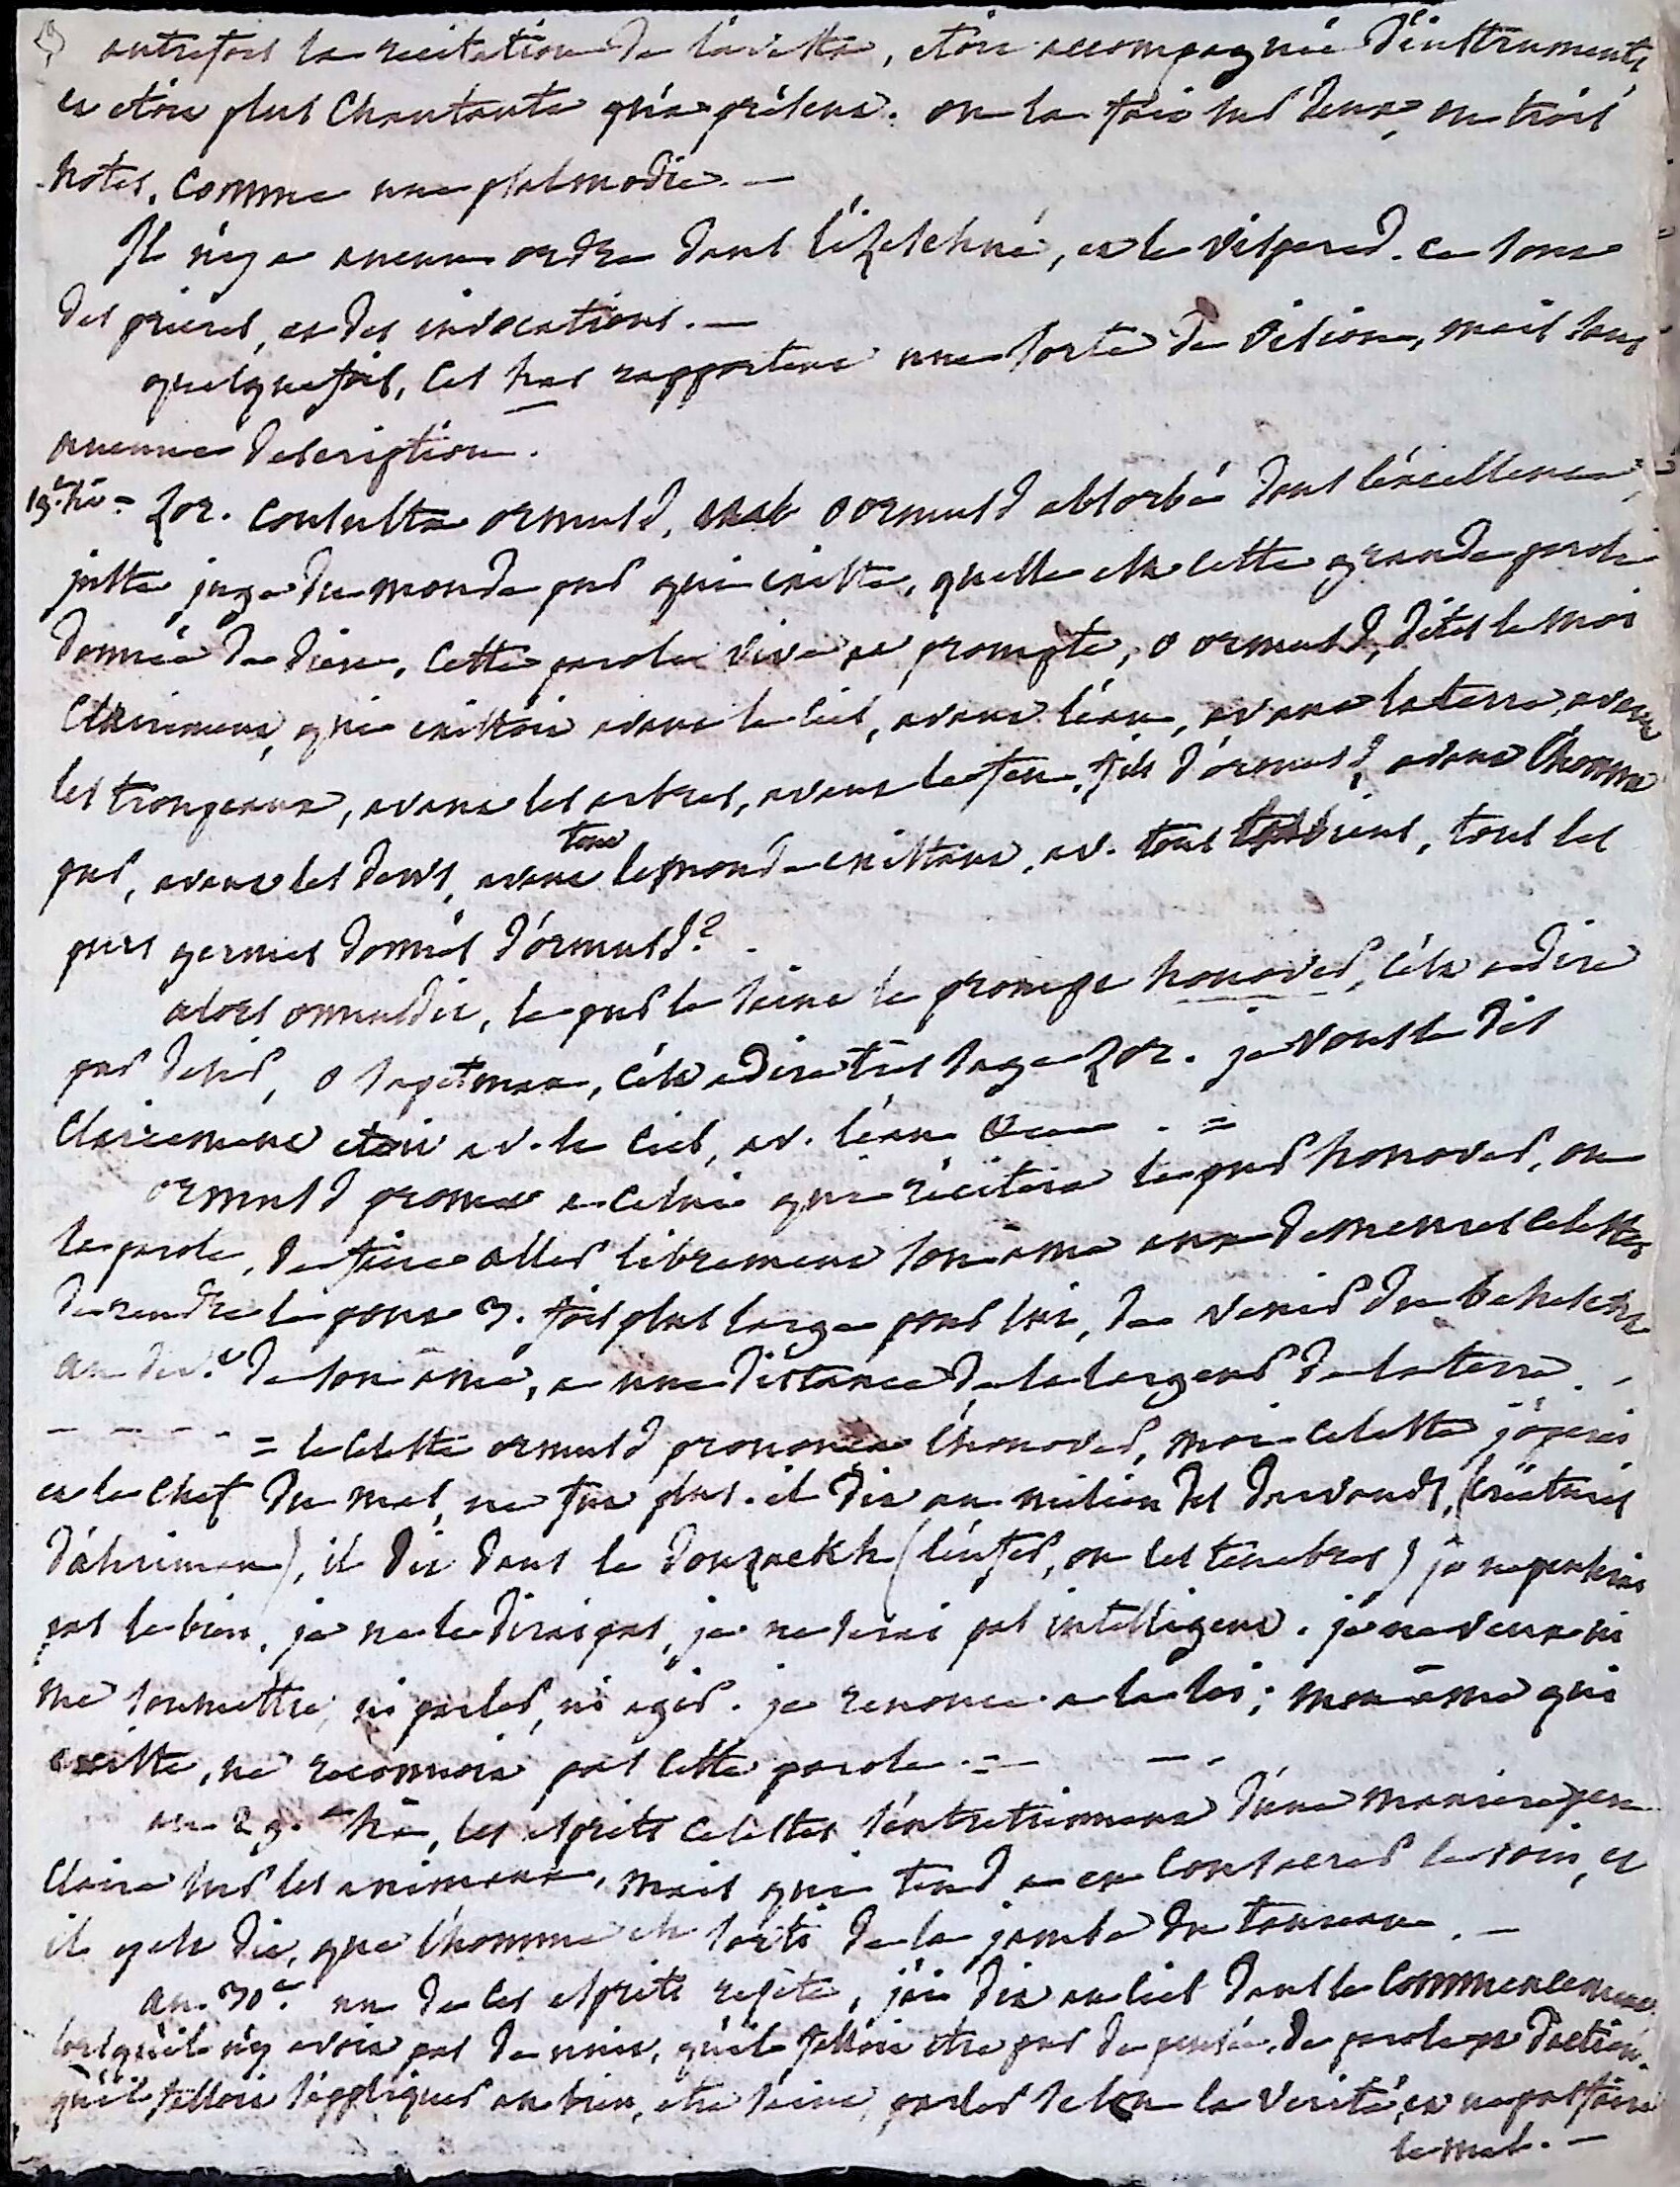 autrefois la recitation de l'avesta, etoit accompagnée d'instruments,
et etoit plus chantante qu'a présent. on la fait sur deux, ou trois
notes, comme une psalmodie. —
Il n'y a aucun ordre dans l'izeschné, et le vispered. ce sont
des prieres, et des invocations. —
quelquefois, les has rapportent une sorte de vision, mais sans
aucune description.
19.e hâ = Zor. consulta ormusd, o ormusd absorbé dans l'excellence,
juste juge du monde pur qui existe, quelle est cette grande parole
donnée de dieu, cette parole vive et prompte, o ormusd, dites le moi
clairement, qui existoit avant le ciel, avant l'eau, avant la terre, avant
les troupeaux, avant les arbres, avant le feu fils d'ormusd, avant l'homme
pur, avant les dews, avant tout le monde existant, av. tous les biens, tous les
purs germes donnés d'ormusd?
alors ormusd dit, le pur le saint le prompt honover, c'est a dire
pur desir, o sapetman, c'est a dire très sage Zor. je vous le dis
clairement etoit av. le ciel, av. l'eau &c. =
ormusd promet a celui qui récitera le pur honover, ou
la parole, de faire aller librement son âme aux demeures celestes
de rendre le pont 3. fois plus large pour lui, de venir du behescht
au dev.t de son âme, a une distance de la largeur de la terre. -
- - - - = le celeste ormusd prononça l'honover, moi celeste j'operai
et le chef du mal, ne fut plus. il dit au milieu des darvands, (créatures
d'ahriman), il dit dans le douzackh (l'enfer, ou les tenebres) je ne penserai
pas le bien, je ne le dirai pas, je ne serai pas intelligent. je ne veux ni
me soumettre, ni parler, ni agir. je renonce a la loi; mon âme qui
existe, ne reconnoit pas cette parole. = — -
au 29.e hâ, les esprits celestes s'entretiennent d'une maniere peu
claire sur les animaux, mais qui tend a en consacrer le soin, et
il y est dit, que l'homme est sorti de la jambe du taureau. —
au 30.e un de ces esprits repete, j'ai dit au ciel dans le commencement
lorsqu'il n'y avoit pas de nuit, qu'il falloit etre pur de pensée, de parole et d'action.
qu'il falloit s'appliquer au bien, etre saint, parler selon la verité, et ne pas faire
le mal. —